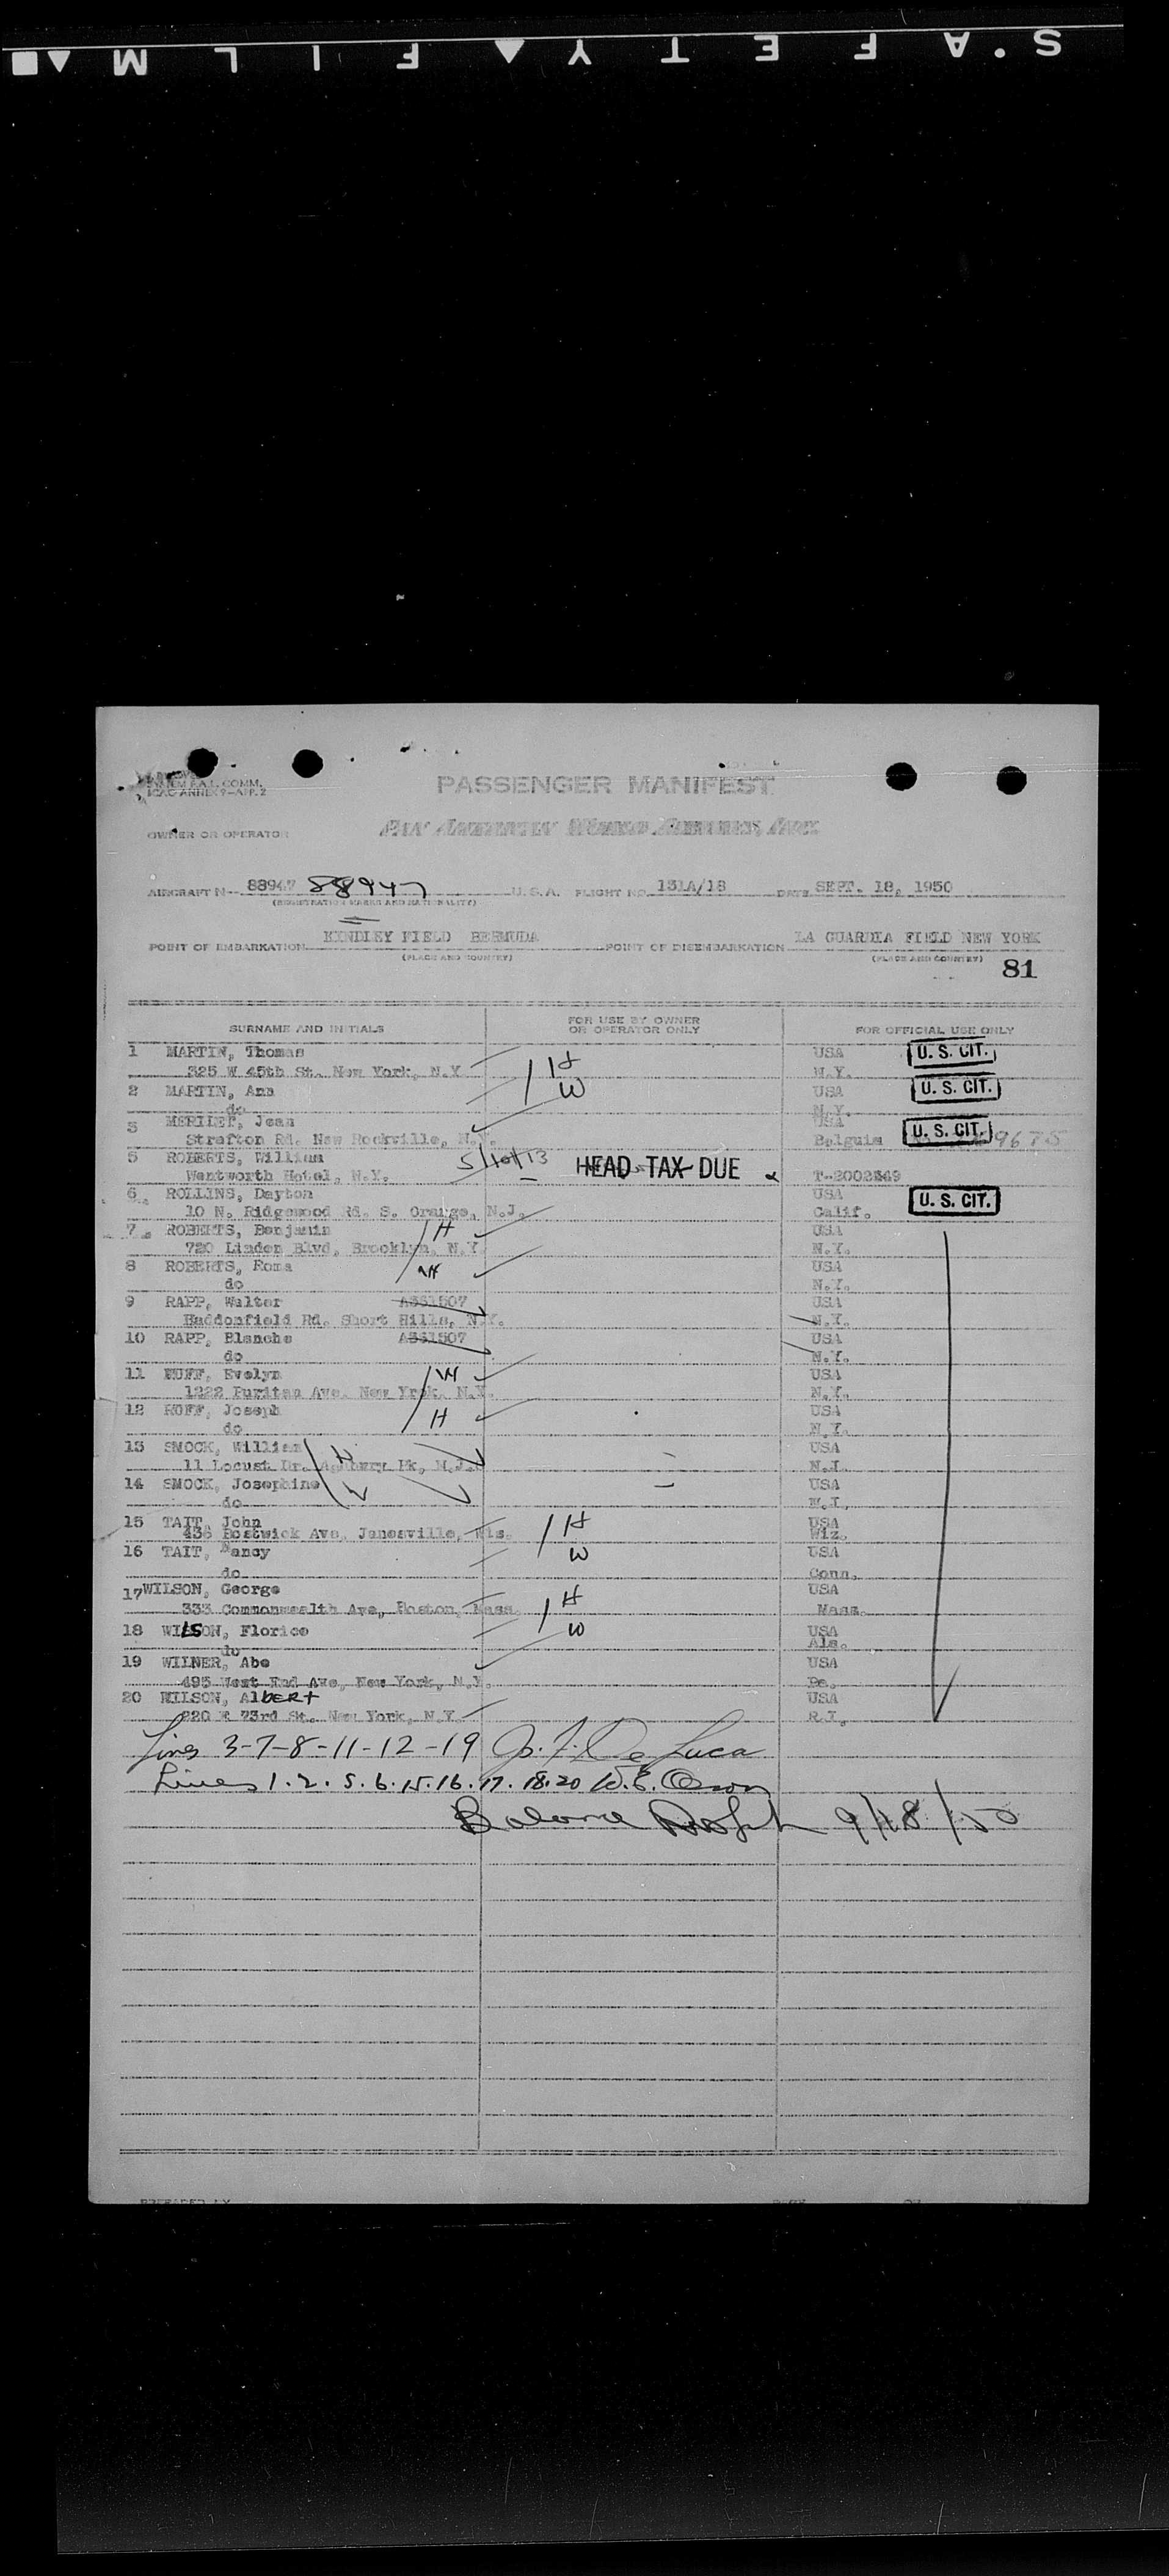 SAFETY FILM
PASSENGER MANIFEST
OWNER OR OPERATOR
AIRCRAFT N- 88947 88947 U.S.A. FLIGHT NO. 131A/18 DATE SEPT. 18, 1950
(REGISTRATION MARKS AND NATIONALITY)
POINT OF EMBARKATION KINDLEY FIELD BERMUDA POINT OF DISEMBARKATION LA GUARDIA FIELD NEW YORK
(PLACE AND COUNTRY) (PLACE AND COUNTRY)
81
SURNAME AND INITIALS FOR USE BY OWNER OR OPERATOR ONLY FOR OFFICIAL USE ONLY
1 MARTIN, Thomas H USA U. S. CIT.
325 W 45th St. New York, N.Y N.Y.
2 MARTIN, Ann W USA U. S. CIT.
do N.Y.
3 Jean USA U. S. CIT.
Stratton Rd. New Rockville, N.Y. Belguim
5 ROBERTS, William HEAD TAX DUE
Wentworth Hotel, N.Y. T-2002349
6 ROLLINS, Dayton USA U. S. CIT.
10 N. Ridgewood Rd. S. Orange, N.J. Calif.
7 ROBERTS, Benjamin H USA
720 Linden Blvd, Brooklyn, N.Y. N.Y.
8 ROBERTS, Roma USA
do N.Y.
9 RAPP, Walter A361507 USA
Haddonfield Rd. Short Hills, N.Y. N.Y.
10 RAPP, Blanche A361507 USA
do N.Y.
11 RUFF, Evelyn W USA
1222 Puritan Ave. New York, N.Y. N.Y.
12 RUFF, Joseph H USA
do N.Y.
13 SMOCK, William H USA
11 Locust Dr. Asbury Pk, N.J. N.J.
14 SMOCK, Josephine W USA
do N.J.
15 TAIT, John H USA
436 Bostwick Ave, Janesville, Wis. Wiz.
16 TAIT, Nancy W USA
do Conn.
17 WILSON, George H USA
333 Commonwealth Ave, Boston, Mass. Mass.
18 WILSON, Florice W USA
do Ala.
19 WILNER, Abe USA
495 West End Ave, New York, N.Y. Pa.
20 WILSON, Albert USA
220 E 73rd St. New York, N.Y. R.I.
Lines 3-7-8-11-12-19 Jo. F. De Luca
Lines 1. 2. 5. 6. 15. 16. 17. 18. 20 W. E.
Balance 9/18/50